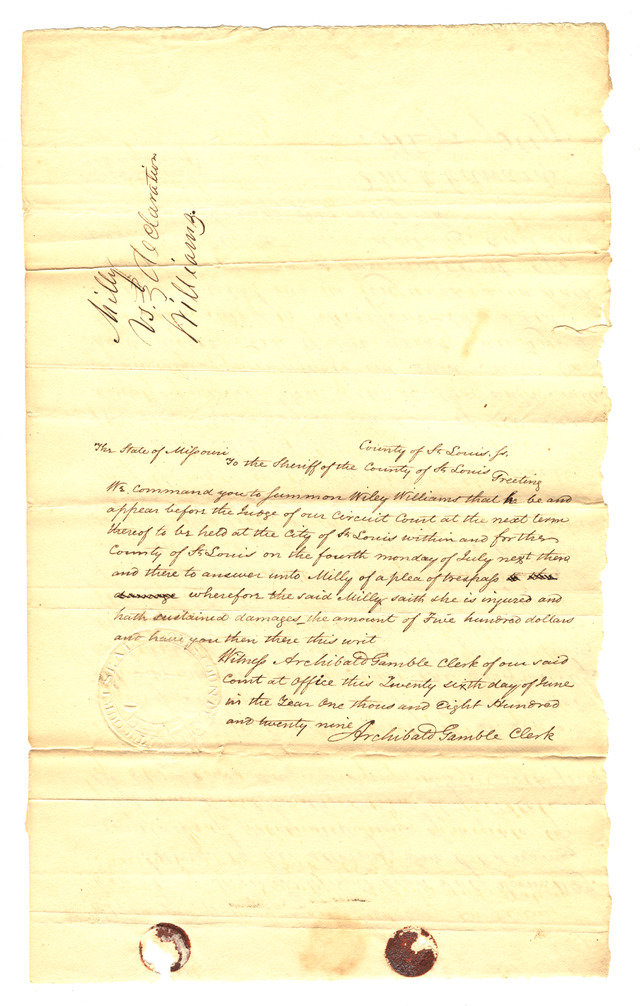 Milly
vs. } Declaration
Williams.
County of St Louis, ss.
The State of Missouri
To the Sheriff of the County of St Louis Greeting
We command you to Summon Wiley Williams that he be and
appear before the Judge of our Circuit Court at the next term
thereof to be held at the City of St Louis within and for the
County of St Louis on the fourth monday of July next then
and there to answer unto Milly of a plea of trespass
damage wherefore the said Milly saith she is injured and
hath sustained damages the amount of Five hundred dollars
and have you then there this writ
Witness Archibald Gamble Clerk of our said
Court at Office this Twenty sixth day of June
in the Year One thous and Eight Hundred
and twenty nine
Archibald Gamble Clerk